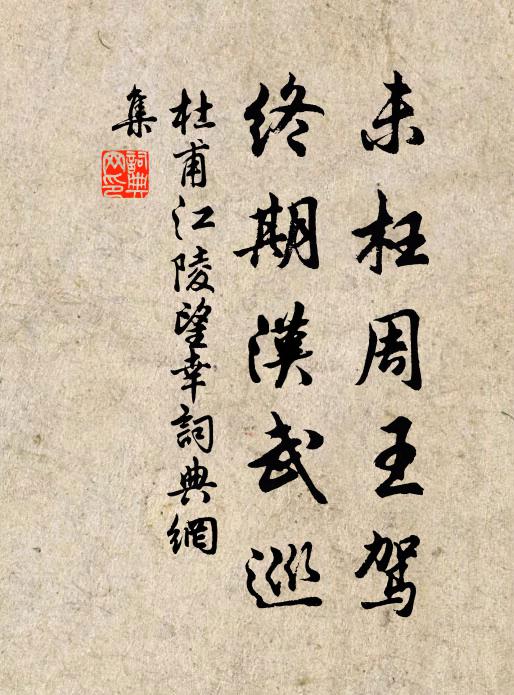 未枉周王駕
終期漢武巡
杜甫江陵望幸詞典網
集
詞典网印